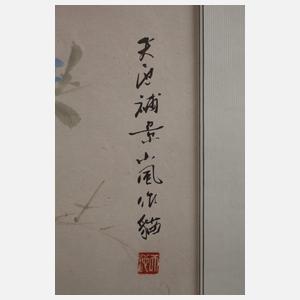 天池補景小嵐作貓